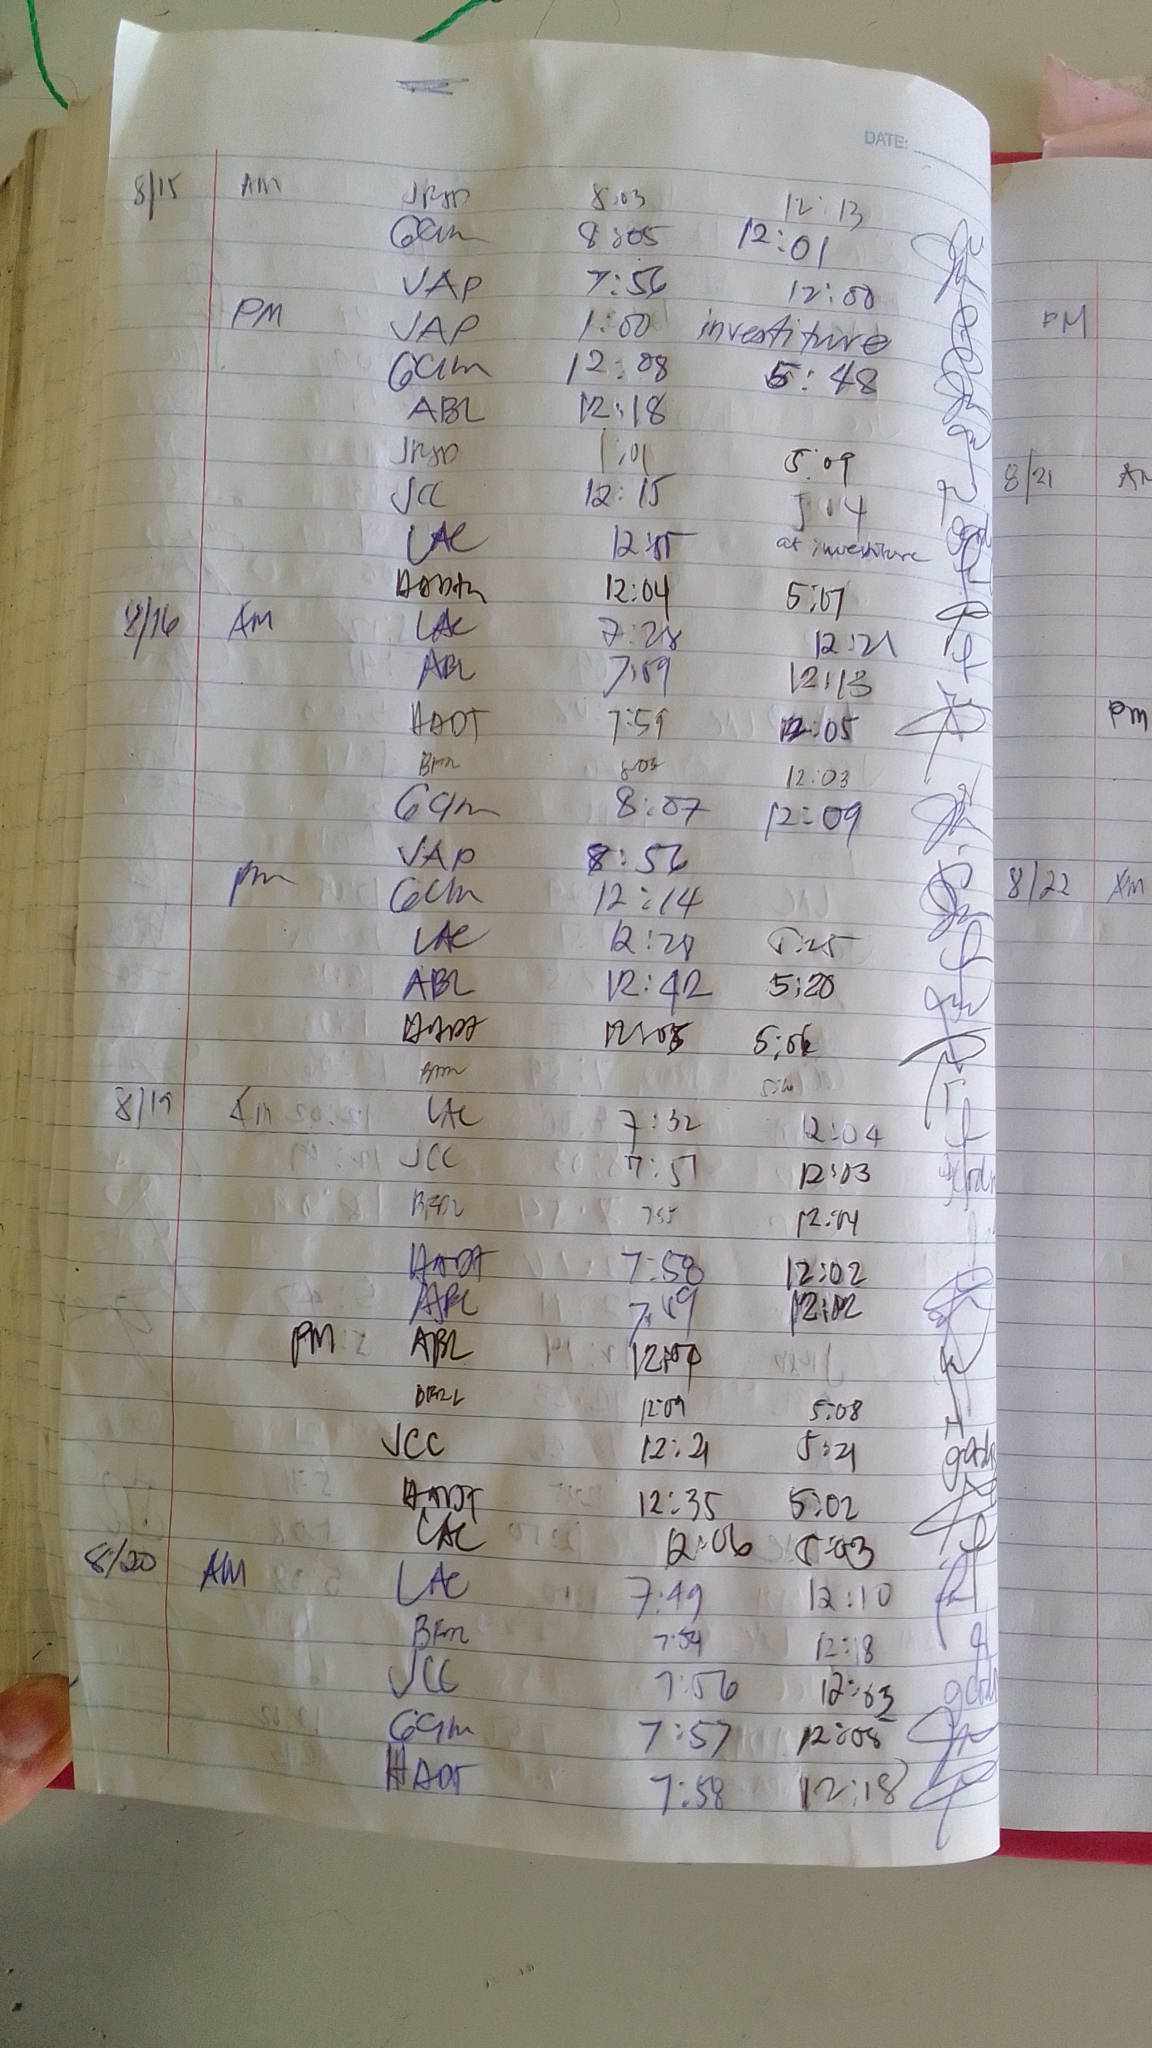 DATE:
8/15 AM 8:03 12:13
GCLM 8:05 12:01
VAP 7:56 12:00
PM VAP 1:00 investiture
GCLM 12:08 5:48
ABL 12:18
1:01 5:09
JCC 12:15 5:14
LAC at investiture
12:04 5:07
8/16 AM LAC 7:28 12:21
ABL 7:59 12:13
HADT 7:59 12:05
BFM 12:03
GCLM 8:07 12:09
VAP 8:56
PM GCLM 12:14
LAC 12:28 5:25
ABL 12:42 5:20
HADT 12:05 5:06
BFM
8/19 AM LAC 7:32 12:04
JCC 7:51 12:03
12:04
HADT 7:58 12:02
ABL 7:59 12:02
PM ABL
12:09 5:08
JCC 12:21 5:21
HADT 12:35 5:02
LAC 12:06 5:03
8/20 AM LAC 7:49 12:10
BFM 7:54 12:18
JCC 7:56 12:03
GCLM 7:57 12:08
HADT 7:58 12:18
PM
8/21 AM
PM
8/22 AM